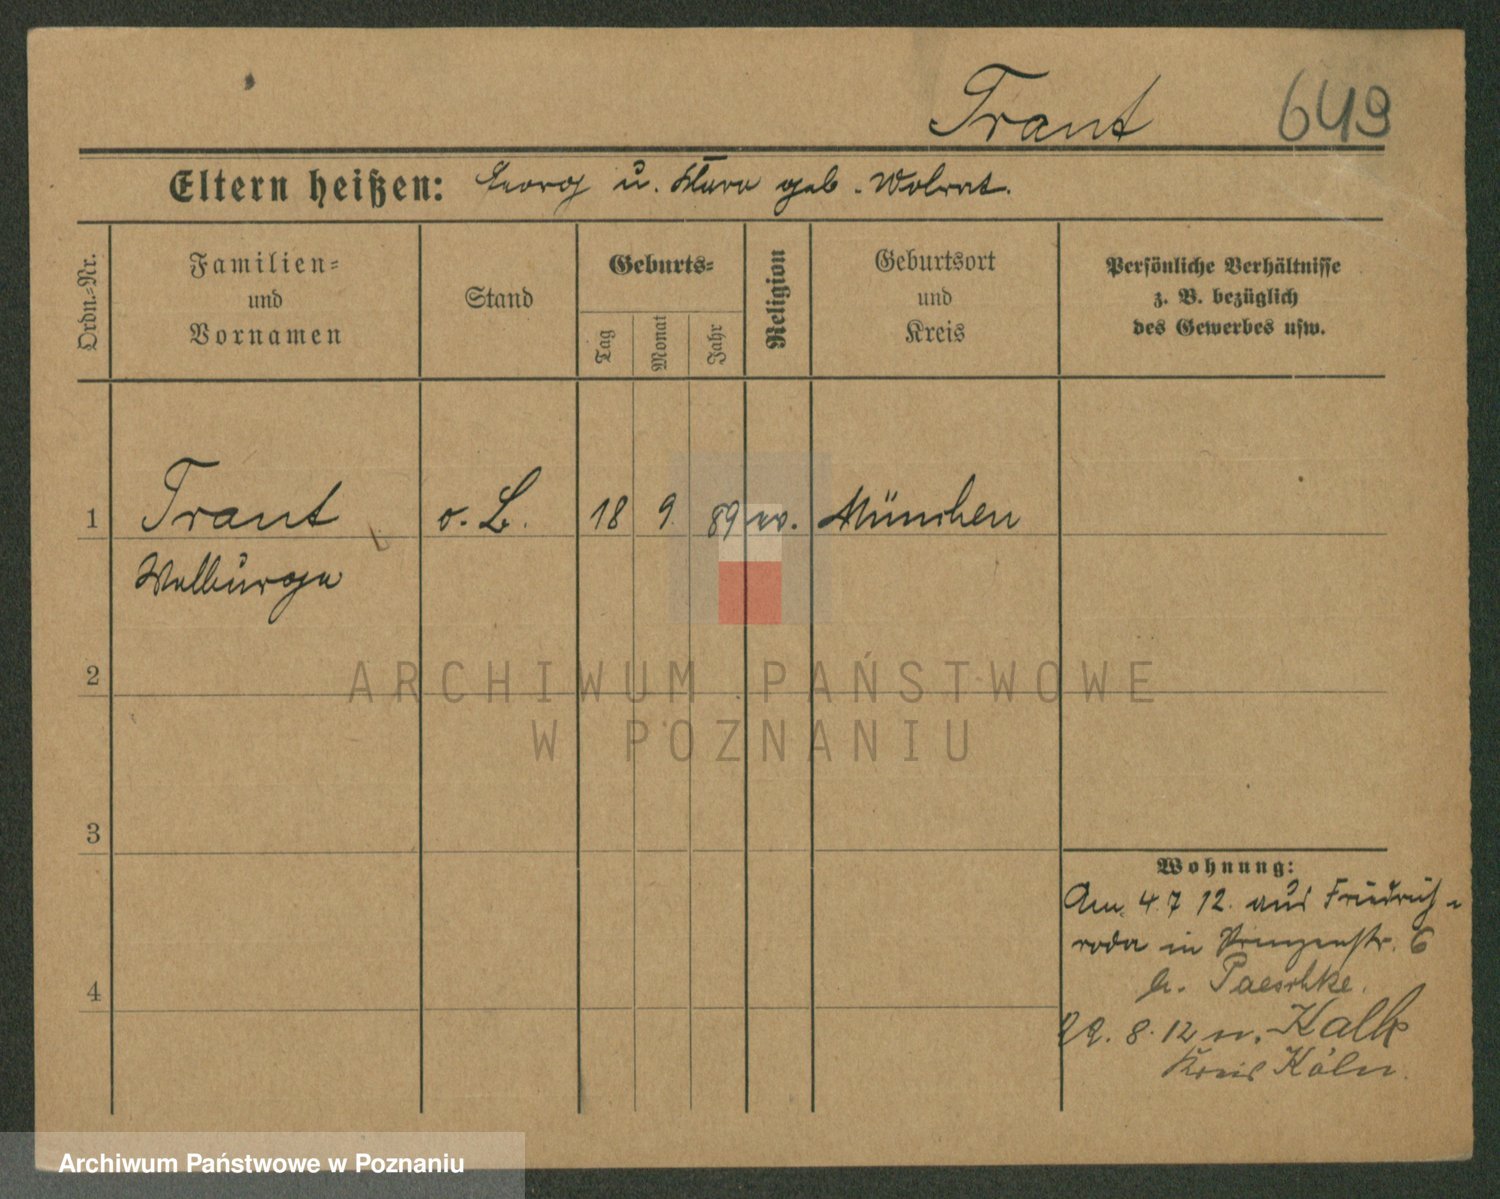 Trant 649
Eltern heißen: Georg u. Klara geb.
Ordn.=Nr.
Familien=
und
Vornamen
Stand
Geburts=
Tag
Monat
Jahr
Religion
Geburtsort
und
Kreis
Persönliche Verhältnisse
z. B. bezüglich
des Gewerbes usw.
1 Trant o. B. 18 9. 89 München
Walburga
2
3
4
Wohnung:
Am 4.7 12. aus Friedrich-
roda in Prinzenstr. 6
b. Paeschke.
22. 8. 12 n. Kalk
Kreis Köln.
ARCHIWUM PAŃSTWOWE
W POZNANIU
Archiwum Państwowe w Poznaniu